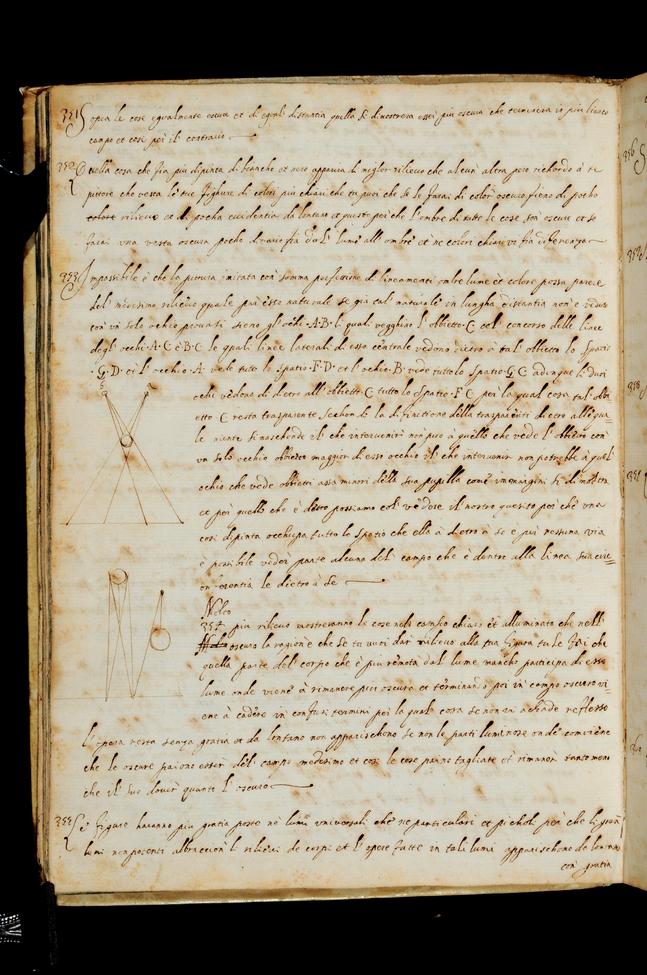 351 Sopra le cose egualmente oscure et di egual distantia quella si dimostrera esser piu oscura che terminera in piu bianco
campo et cosi per il contrario
352 Quella cosa che sia piu dipinta di biancho et nero apparira di meglor rilievo che alcun altra pero richordo à te
pittore che vesta le tue fighure di colori piu chiari che tu puoi che se le farai di color oscuro fieno di pocho
rilievo et di pocha evidentia da lontano et questo per che l'ombre di tutte le cose son oscure et se
farai una vesta oscura pocho divario fia dal lume all ombre et ne colori chiari vi fia diferenza
353 Impossibile è che la pittura imitata con somma perfezione di lineamenti ombre lume et colore possa parere
del medesimo rilievo quale par esso naturale se gia tal naturale in lungha distantia non è veduto
con un solo ochio provasi sieno gl'ochi A B li quali vegghino l'obbietto C col concorso delle linee
degl ochi A C è B C le quali linee laterali di essa centrale vedono dietro à tal obbietto lo spatio
G D et l'ochio A vede tutto lo spatio F D et l'ochio B vede tutto lo spatio G C adunque li duoi
ochi vedono di dietro all'obbietto C tutto lo spatio F C per la qual cosa tal obbi
etto C resta trasparente sechondo la difinitione della trasparenti dietro alle qua=
le niente si naschonde il che intervenir non puo à quello che vede l'obbietto con
un solo occhio obbietto maggior di esso occhio il che intervenir non potrebbe à quel
ochio che vede obbietti assai minori della sua pupilla come in margine si dimostra
et per quello che è detto possiamo col vedere il nostro quesito per chè una
cosi dipinta occhupa tutto lo spatio che ella à dietro à se e per nessuna via
è possibile veder parte alcuna del campo che è dentro alla linea sua circu=
onferentia le dietro à se
Molto
354 piu rilievo mostreranno le cose nel campo chiaro et alluminato che nell
oscuro la ragion è che se tu vuoi dar rilievo alla tua figura tu le fai che
quella parte del corpo che è piu remota dal lume manche participa di esso
lume onde viene à rimanere piu oscura et terminando poi in campo oscuro vi=
ene à cadere in confusi termini per la qual cosa se non vi achade reflesso
l'opera resta senza gratia et da lontano non apparischono se non le parti luminose onde conviene
che le oscure paiono esser del campo medesimo et cosi le cose paiano tagliate et rimanon tanto meno
che il suo dover quanto l'oscuro
355 Le figure haranno piu gratia poste ne lumi universali che ne particulari et picholi per che li gran
lumi non potenti abbraccion li rilievi de corpi et l'opere fatte in tali lumi apparischono da lontano
con gratia